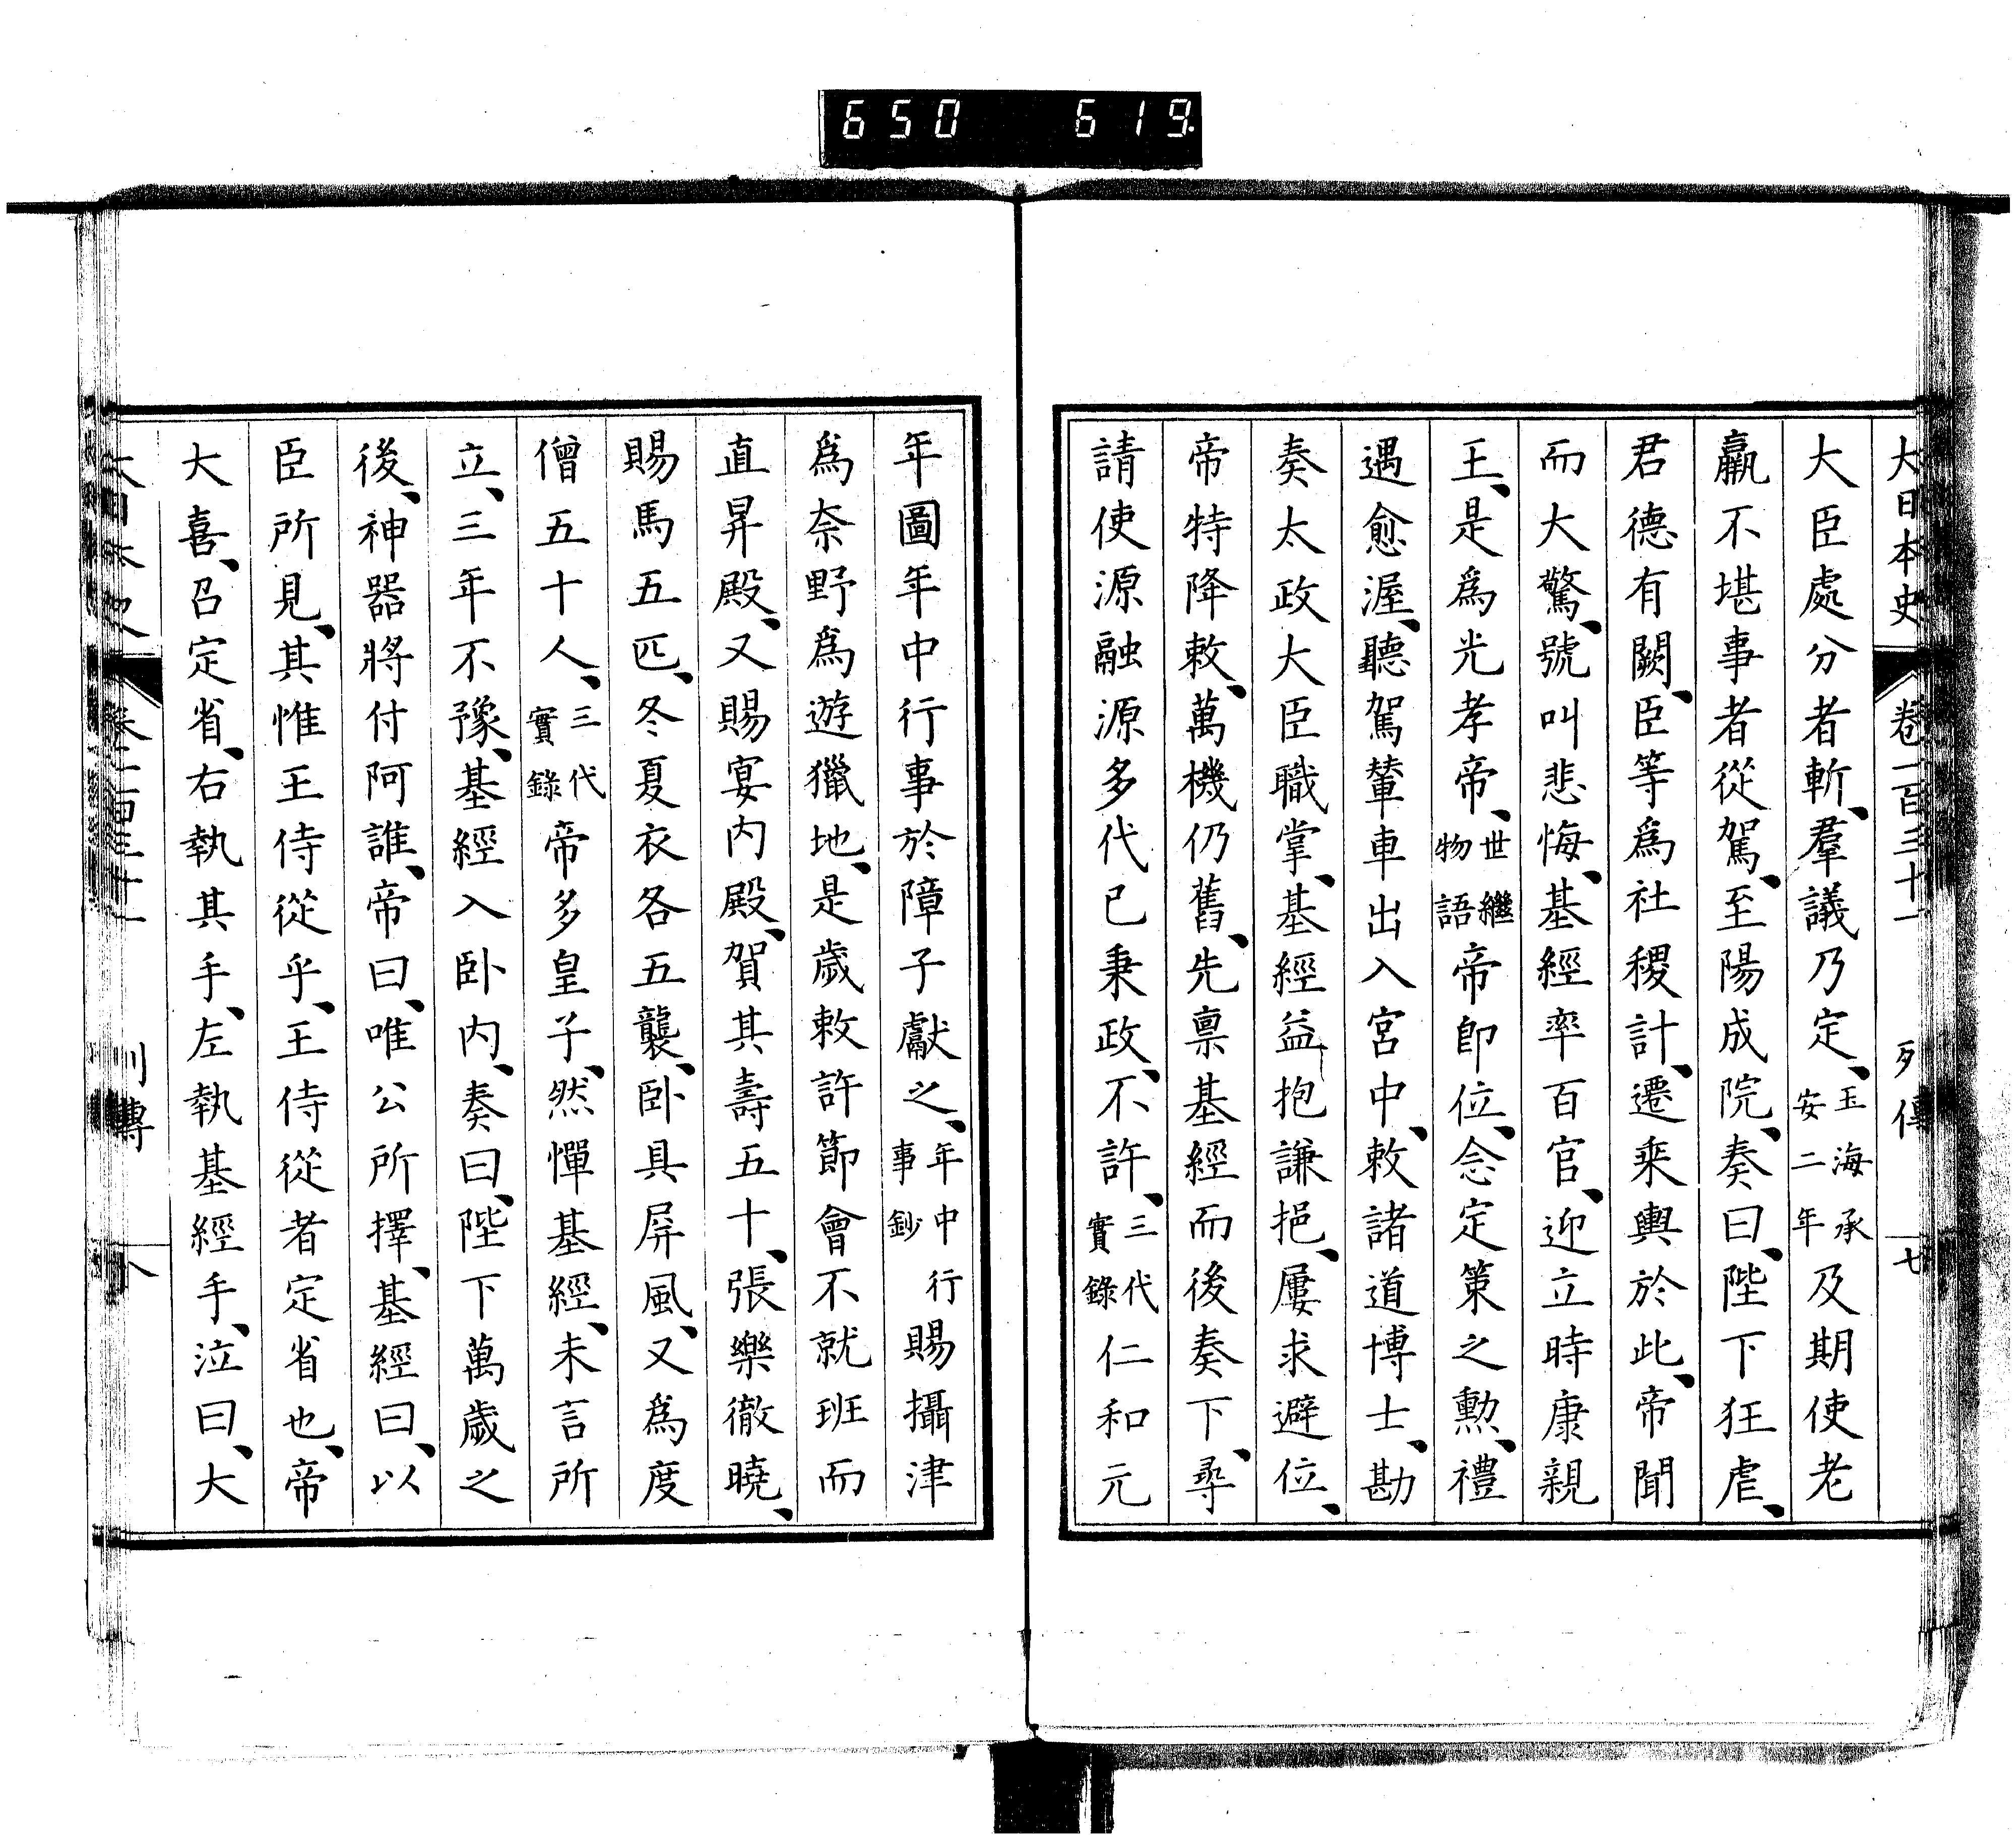 650 619.
大日本史 卷一百三十一 列傳 七
大臣處分者斬、羣議乃定、玉海承安二年及期使老
羸不堪事者從駕、至陽成院、奏曰、陛下狂虐、
君德有闕、臣等爲社稷計、遷乘輿於此、帝聞
而大驚、號叫悲悔、基經率百官、迎立時康親
王、是爲光孝帝、世繼物語帝卽位、念定策之勲、禮
遇愈渥、聽駕輦車出入宮中、敕諸道博士、勘
奏太政大臣職掌、基經益抱謙挹、屢求避位、
帝特降敕、萬機仍舊、先稟基經而後奏下、尋
請使源融源多代已秉政、不許、三代實錄仁和元
年圖年中行事於障子獻之、年中行事鈔賜攝津
爲奈野爲遊獵地、是歲敕許節會不就班而
直昇殿、又賜宴内殿、賀其壽五十、張樂徹曉、
賜馬五匹、冬夏衣各五襲、卧具屏風、又爲度
僧五十人、三代實錄帝多皇子、然憚基經、未言所
立、三年不豫、基經入卧内、奏曰、陛下萬歲之
後、神器將付阿誰、帝曰、唯公所擇、基經曰、以
臣所見、其惟王侍從乎、王侍從者定省也、帝
大喜、召定省、右執其手、左執基經手、泣曰、大
大日本史 卷一百三十一 列傳 八